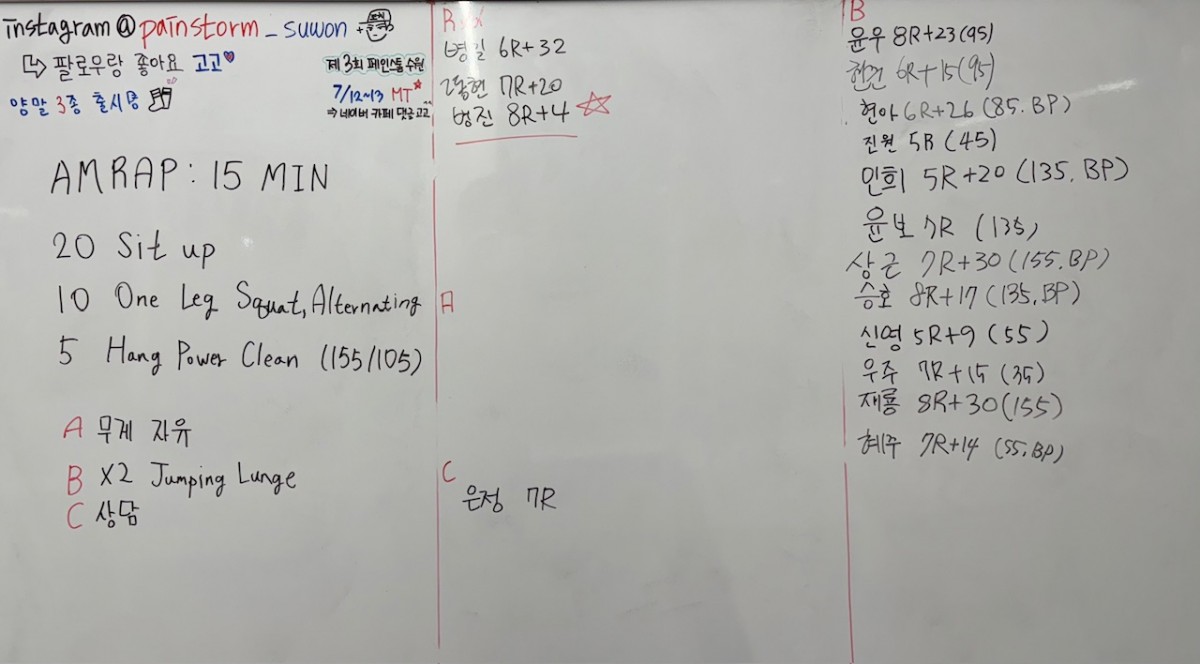 instagram@painstorm_suwon
팔로우랑 좋아요 고고
양말 3종 출시중
제3회 페인스톰 수원
7/12~13 MT
⇒ 네이버 카페 댓글고고
AMRAP : 15 MIN
20 Sit up
10 One Leg Squat, Alternating
5 Hang Power Clean (155/105)
A 무게 자유
B X2 Jumping Lunge
C 상담
병길 6R+32
7R+20
범진 8R+4
A
C
은정 7R
B
윤우 8R+23(95)
6R+15(95)
현아 6R+26 (85. BP)
진원 5R (45)
민희 5R+20 (135. BP)
윤보 7R (135)
상근 7R+30 (155. BP)
승호 8R+17 (135, BP)
신영 5R+9 (55)
우주 7R+15 (35)
재룡 8R+30 (155)
혜주 7R+14 (55. BP)